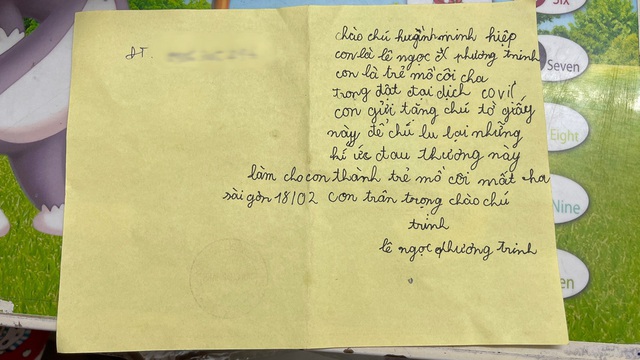 chào chú huỳnh minh hiệp
ĐT.
con là lê ngọc phương trinh
con là trẻ mồ côi cha
trong đật đại dịch covil
con gửi tặng chú tờ giấy
này để chú lu lại những
hí ức đau thương này
làm cho con thành trẻ mồ côi mất cha
sài gòn 18/02 con trân trọng chào chú
trinh
lê ngọc phương trinh
Six
Seven
Eight
Nine
en